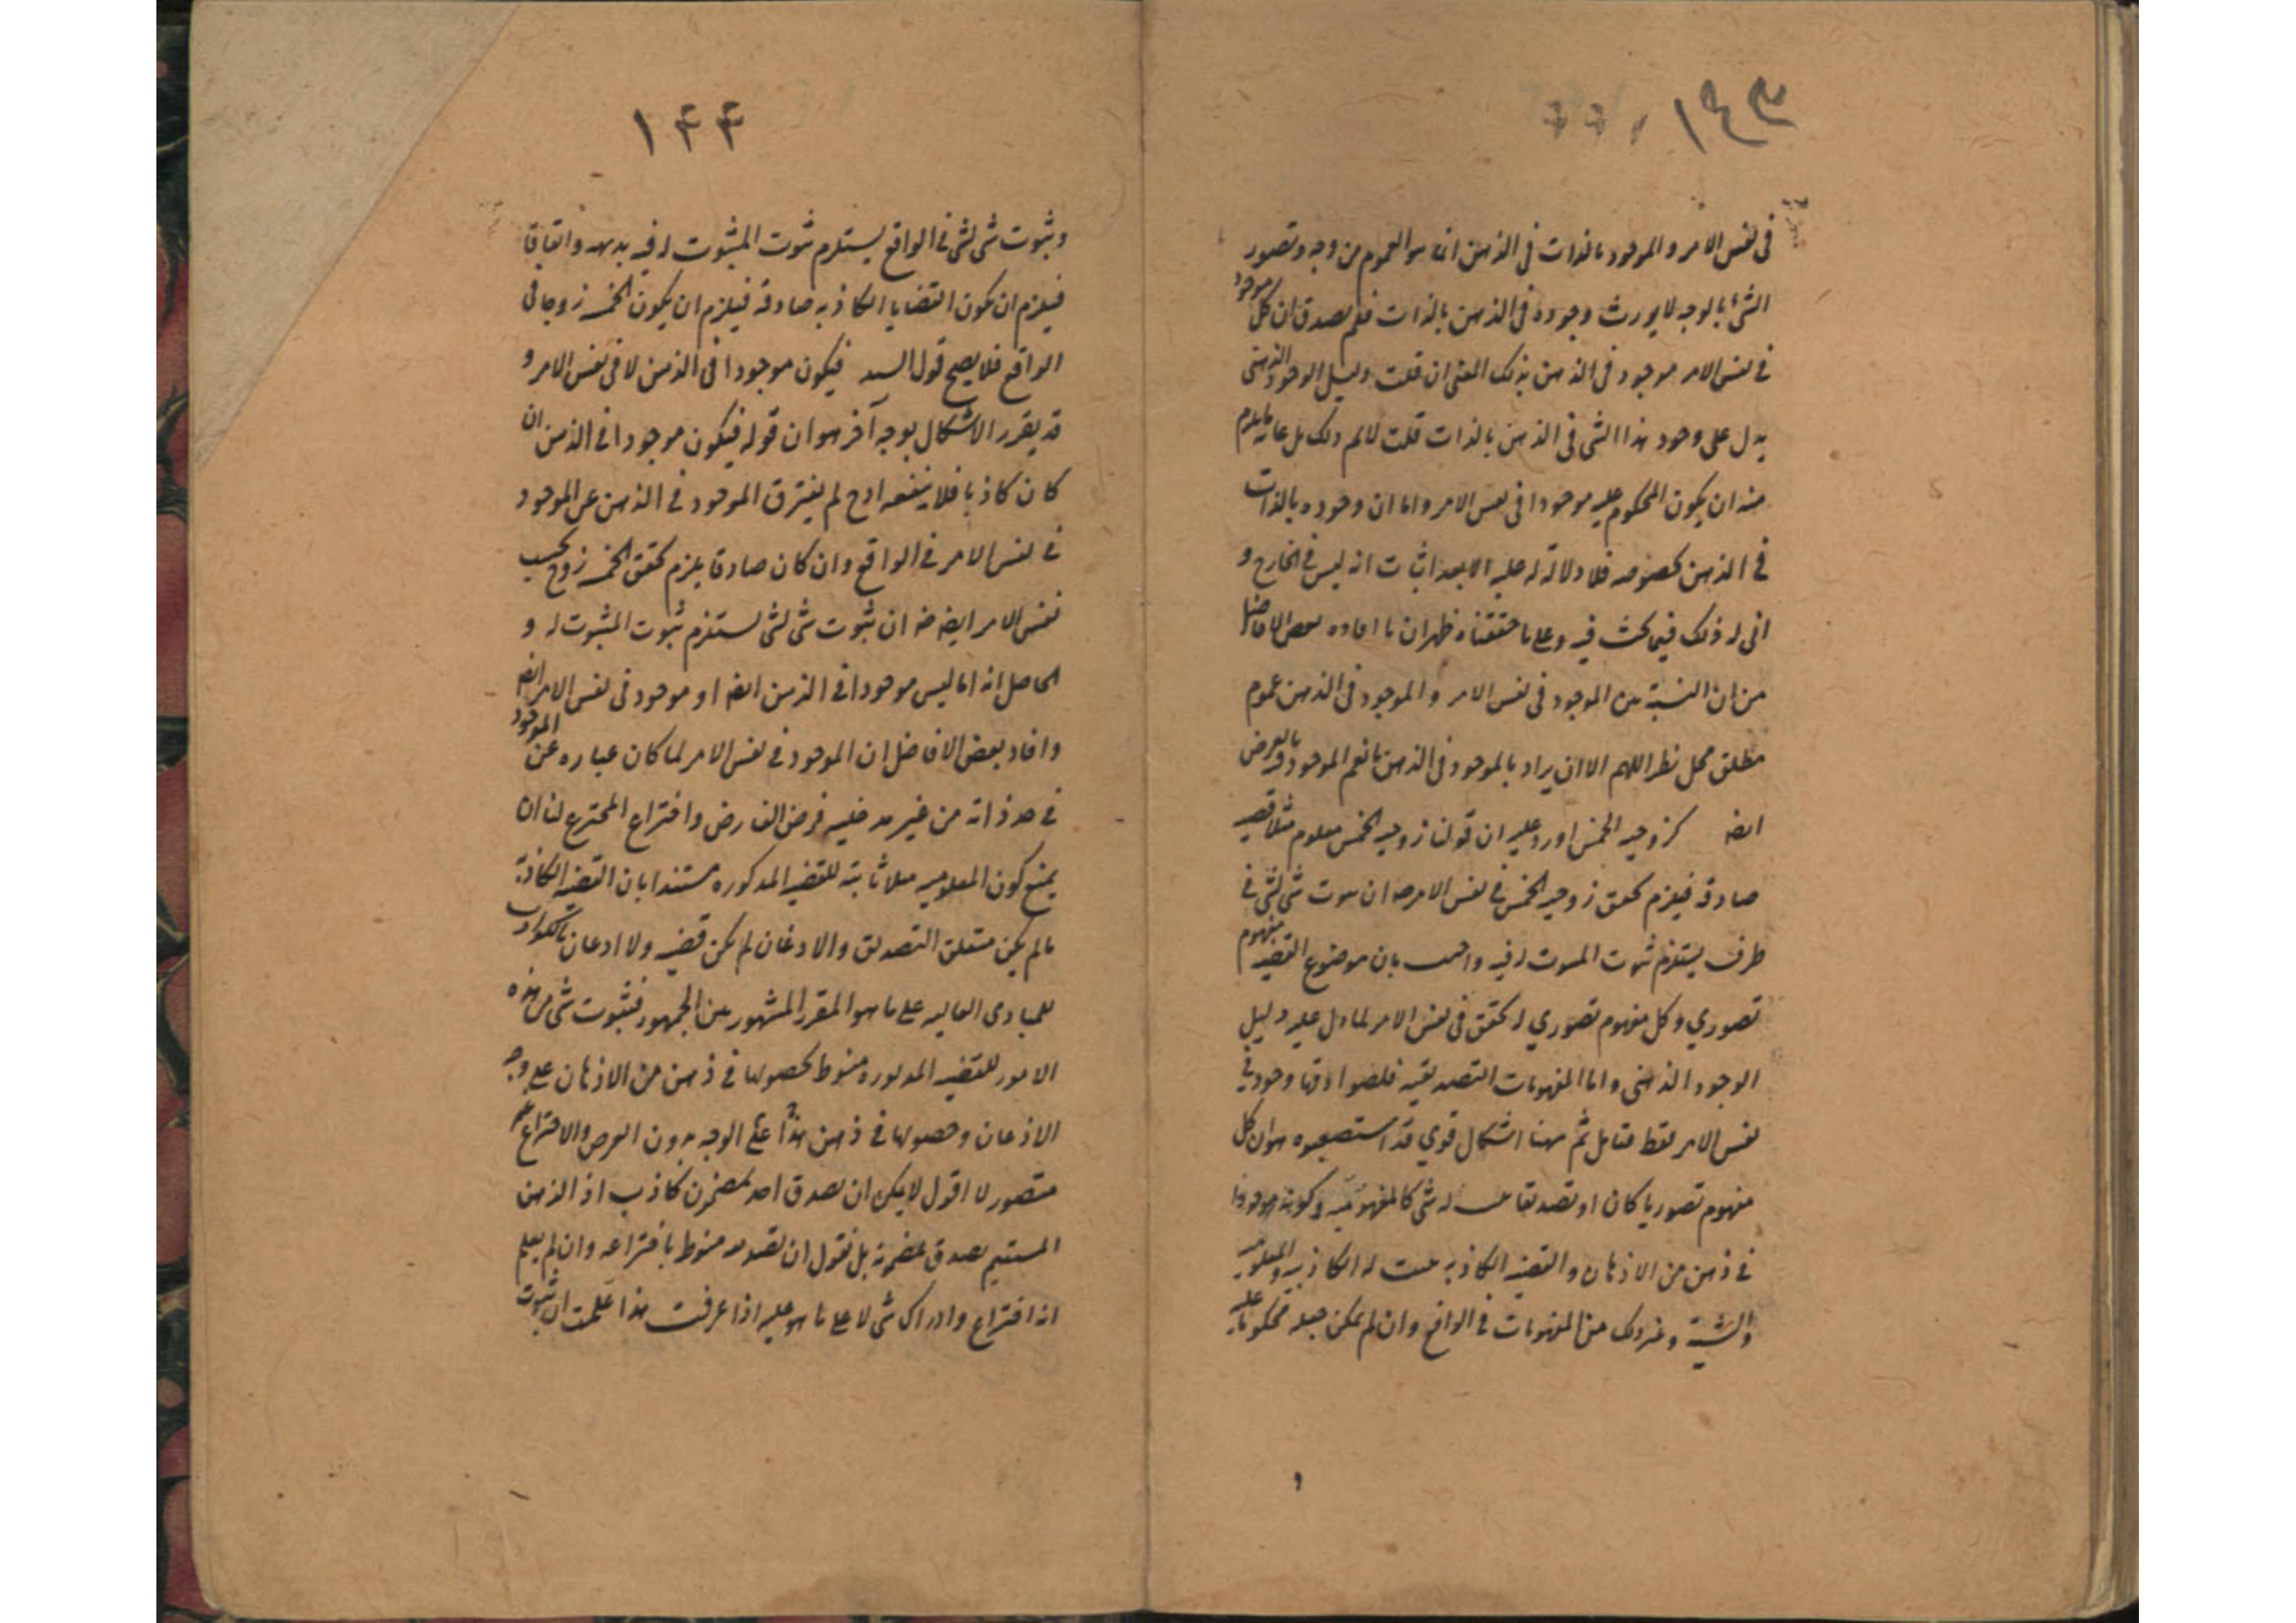 ١٤٣
في نفس الامر والموجود بالذات في الذهن انما هو العموم من وجه وتصور
الشئ بالوجه لا يورث وجوده في الذهن بالذات فلم يصدق ان كل موجود
في نفس الامر موجود في الذهن بذلك المعنى ان قلت دليل الوجود الذهني
يدل على وجود هذا الشئ في الذهن بالذات قلت لا نم ذلك بل غاية ما يلزم
منه ان يكون المحكوم عليه موجودا في نفس الامر واما ان وجوده بالذات
في الذهن بخصوصه فلا دلالة له عليه الا بعد اثبات انه ليس في الخارج و
انى له ذلك فيما بحث فيه وعلى ما حققناه ظهر ان ما افاده بعض الافاضل
من ان النسبة بين الموجود في نفس الامر والموجود في الذهن عموم
مطلق محل نظر اللهم الا ان يراد بالموجود في الذهن ما يعم الموجود فيه بالعرض
ايضه كزوجية الخمس اورد عليه ان قولنا زوجية الخمس معلوم مثلا قضية
صادقة فيلزم تحقق زوجية الخمس في نفس الامر ضه ان ثبوت شئ لشئ في
ظرف يستلزم ثبوت المثبوت له فيه واجيب بان موضوع القضية مفهوم
تصوري وكل مفهوم تصوري له تحقق في نفس الامر لما دل عليه دليل
الوجود الذهني واما المفهومات التصديقية فلصوادقها وجود في
نفس الامر فقط فتامل ثم ههنا اشكال قوي قد استصعبوه هو ان كل
مفهوم تصوريا كان او تصديقا يثبت له شئ كالمفهومية وكونه موجودا
في ذهن من الاذهان والقضية الكاذبة يثبت له الكاذبية والمعلومية
والشيئية وغير ذلك من المفهومات في الواقع وان لم يمكن جعله محكوما عليه
١٤٤
وثبوت شئ لشئ في الواقع يستلزم ثبوت المثبوت له فيه بديهة واتفاقا
فيلزم ان يكون القضايا الكاذبة صادقة فيلزم ان يكون الخمسة زوجا في
الواقع فلا يصح قول السيد فيكون موجودا في الذهن لا في نفس الامر و
قد يقرر الاشكال بوجه آخر هو ان قوله فيكون موجودا في الذهن ان
كان كاذبا فلا ينفعه اذ ح لم يفترق الموجود في الذهن عن الموجود
في نفس الامر في الواقع وان كان صادقا يلزم تحقق الخمسة زوج بحسب
نفس الامر ايضه ضه ان ثبوت شئ لشئ يستلزم ثبوت المثبوت له و
الحاصل انه اما ليس موجودا في الذهن ايضه او موجود في نفس الامر ايضه
وافاد بعض الافاضل ان الموجود في نفس الامر لما كان عبارة عن الموجود
في حد ذاته من غير مدخلية فرض الفارض واختراع المخترع لنا ان
يمنع كون المعلومية مثلا ثابتة للقضية المذكورة مستندا بان القضية الكاذبة
ما لم يكن متعلق التصديق والاذعان لم يكن قضية ولا اذعان بالكواذب
للمبادى العالية على ما هو المقرر المشهور بين الجمهور فثبوت شئ من هذه
الامور للقضية المذكورة منوط بحصولها في ذهن من الاذهان على وجه
الاذعان وحصولها في ذهن هذا على الوجه بدون الفرض والاختراع غير
متصور لا اقول لا يمكن ان يصدق احد بمضمون كاذب اذ الذهن
المستقيم يصدق بمضمونه بل نقول ان تصديقه منوط باختراعه وان لم يعلم
انه اختراع وادراك شئ لا على ما هو عليه اذا عرفت هذا علمت ان ثبوت